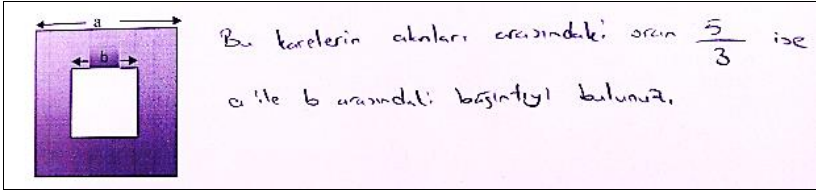 a
b
Bu karelerin alanları arasındaki oran 5/3 ise
a ile b arasındaki bağıntıyı bulunuz.